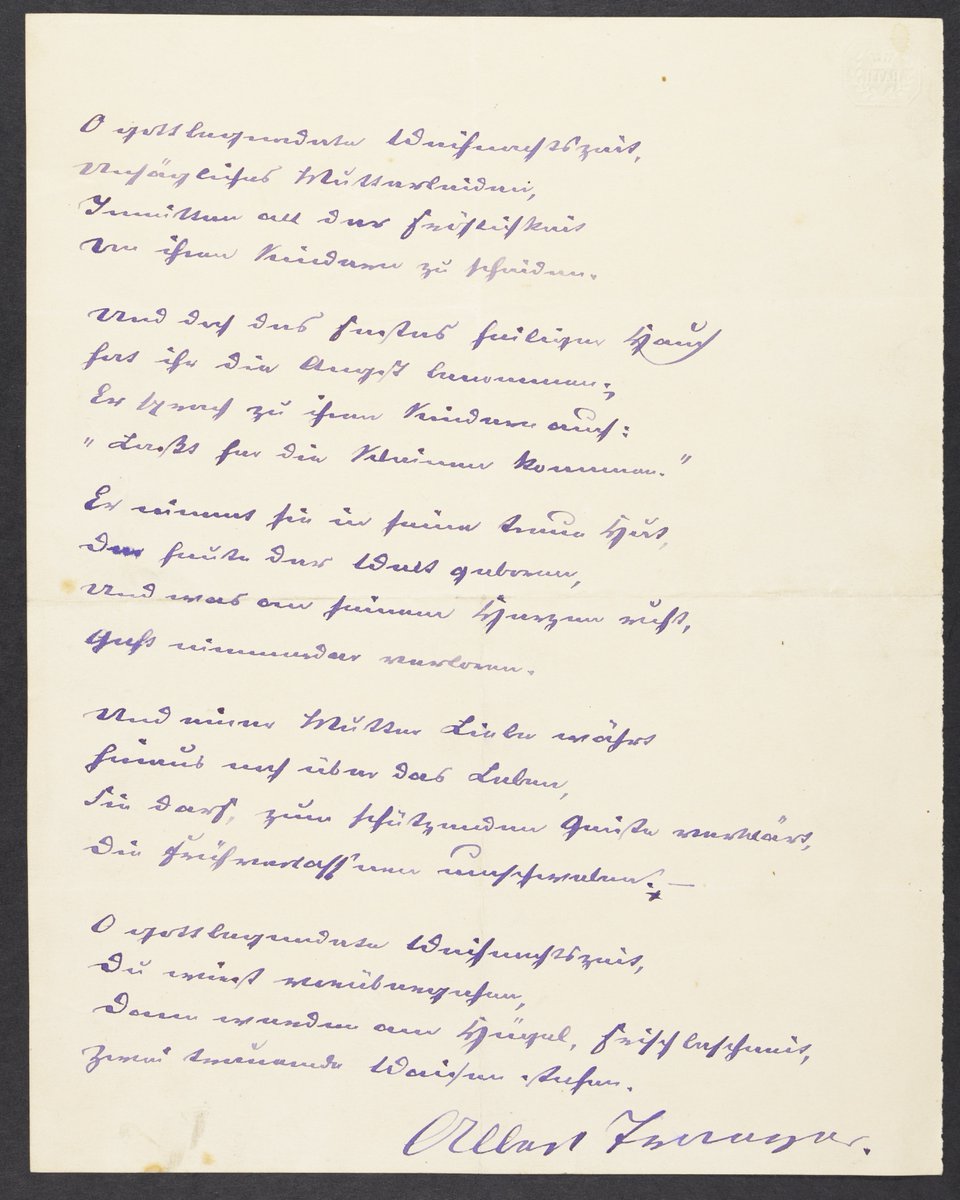 O gottbegnadete Weihnachtszeit,
Unsägliches Mutterleiden,
Inmitten all der Fröhlichkeit
Von ihren Kindern zu scheiden.
Und doch des Festes heiliger Hauch
hat ihr die Angst benommen;
Er sprach zu ihren Kindern auch:
"Laßt her die Kleinen kommen."
Er nimmt sie in seine treue Hut,
Der heute der Welt geboren,
Und was an seinem Herzen ruht,
Geht nimmerdar verloren.
Und einer Mutter Liebe währt
hinaus noch über das Leben,
Sie darf, zum schützenden Geiste verklärt,
Die Frühverlass'nen umschweben. —
O gottbegnadete Weihnachtszeit,
Du wirst vorübergehen,
Dann werden am Hügel, frisch beschneit,
Zwei trauernde Waisen stehen.
Albert